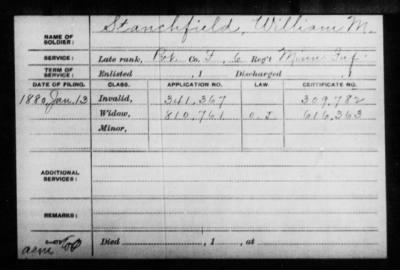 NAME OF SOLDIER: Stanchfield, William M.
SERVICE: Late rank, Pvt. Co. F, 6 Reg't Minn Inf.
TERM OF SERVICE: Enlisted , 1 Discharged , 1
DATE OF FILING. CLASS. APPLICATION NO. LAW. CERTIFICATE NO.
1880, Jan. 13 Invalid, 341,367 309,782
Widow, 810,761 616,363
Minor,
ADDITIONAL SERVICES:
REMARKS:
Died , 1 , at